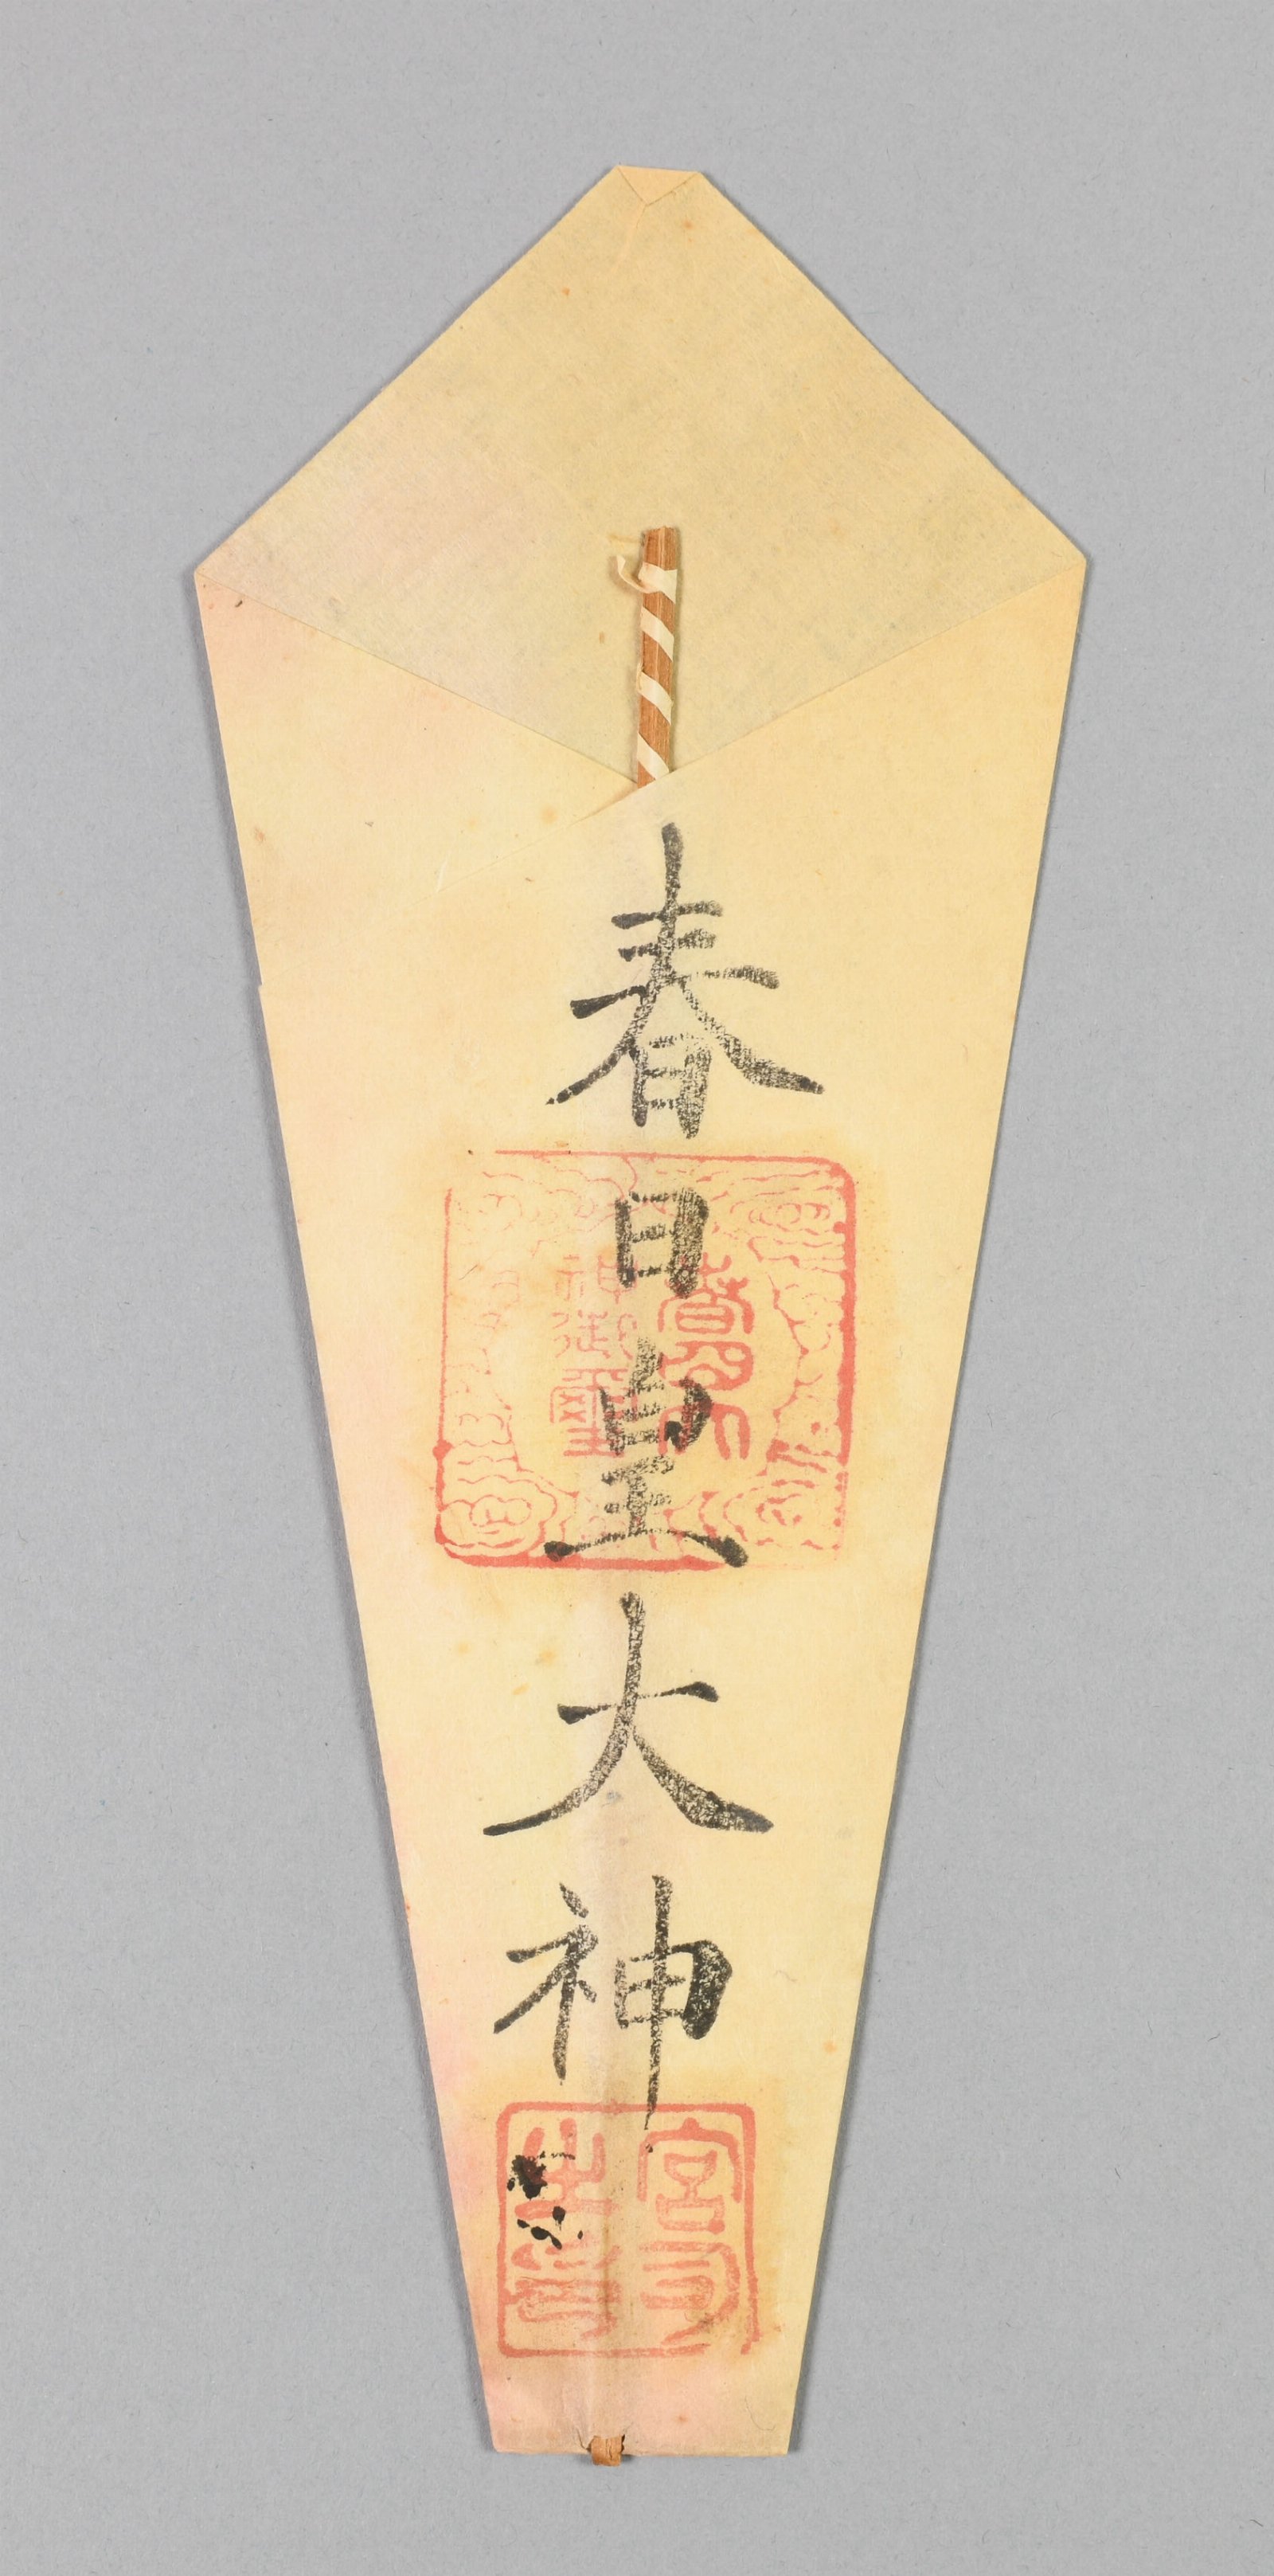 春日皇大神
春日大
神御璽
宮司
之印